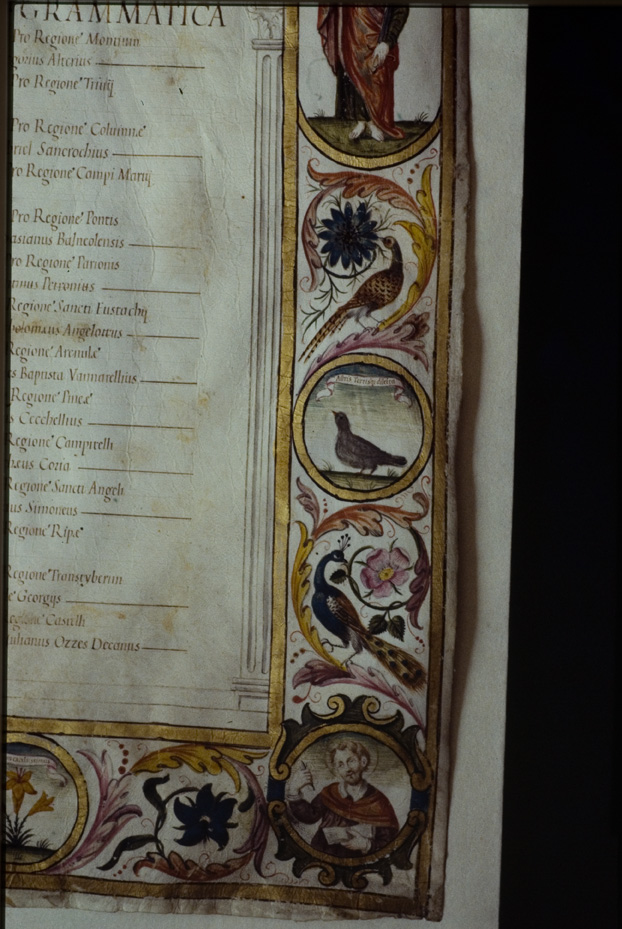 GRAMMATICA
Pro Regione Montium
Alterius
Pro Regione Trivij
Pro Regione Columnæ
Sancrochius
Pro Regione Campi Martij
Pro Regione Pontis
Balneolensis
Pro Regione Parionis
Petronius
Regione Sancti Eustachij
Angelottus
Regione Arenulæ
Baptista Vannarellius
Regione Pineæ
Cecchellius
Regione Campitelli
Coria
Regione Sancti Angeli
us Simoneus
Regione Ripæ
Regione Transtyberim
Georgijs
Regione Castelli
Iulianus Ozzes Decanus